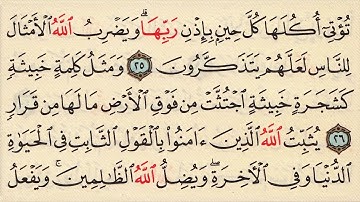 تُؤْتِىٓ أُكُلَهَا كُلَّ حِينٍۭ بِإِذْنِ رَبِّهَا ۗ وَيَضْرِبُ ٱللَّهُ ٱلْأَمْثَالَ
لِلنَّاسِ لَعَلَّهُمْ يَتَذَكَّرُونَ ٢٥ وَمَثَلُ كَلِمَةٍ خَبِيثَةٍ
كَشَجَرَةٍ خَبِيثَةٍ ٱجْتُثَّتْ مِن فَوْقِ ٱلْأَرْضِ مَا لَهَا مِن قَرَارٍ
٢٦ يُثَبِّتُ ٱللَّهُ ٱلَّذِينَ ءَامَنُوا۟ بِٱلْقَوْلِ ٱلثَّابِتِ فِى ٱلْحَيَوٰةِ
ٱلدُّنْيَا وَفِى ٱلْـَٔاخِرَةِ ۖ وَيُضِلُّ ٱللَّهُ ٱلظَّـٰلِمِينَ ۚ وَيَفْعَلُ